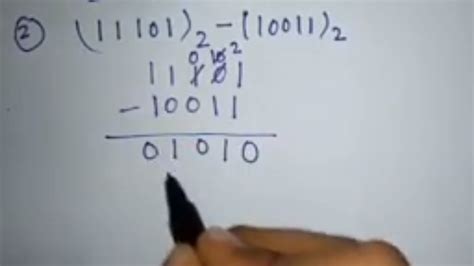 ② (11101)₂ - (10011)₂
0 10 2
11101
- 10011
01010